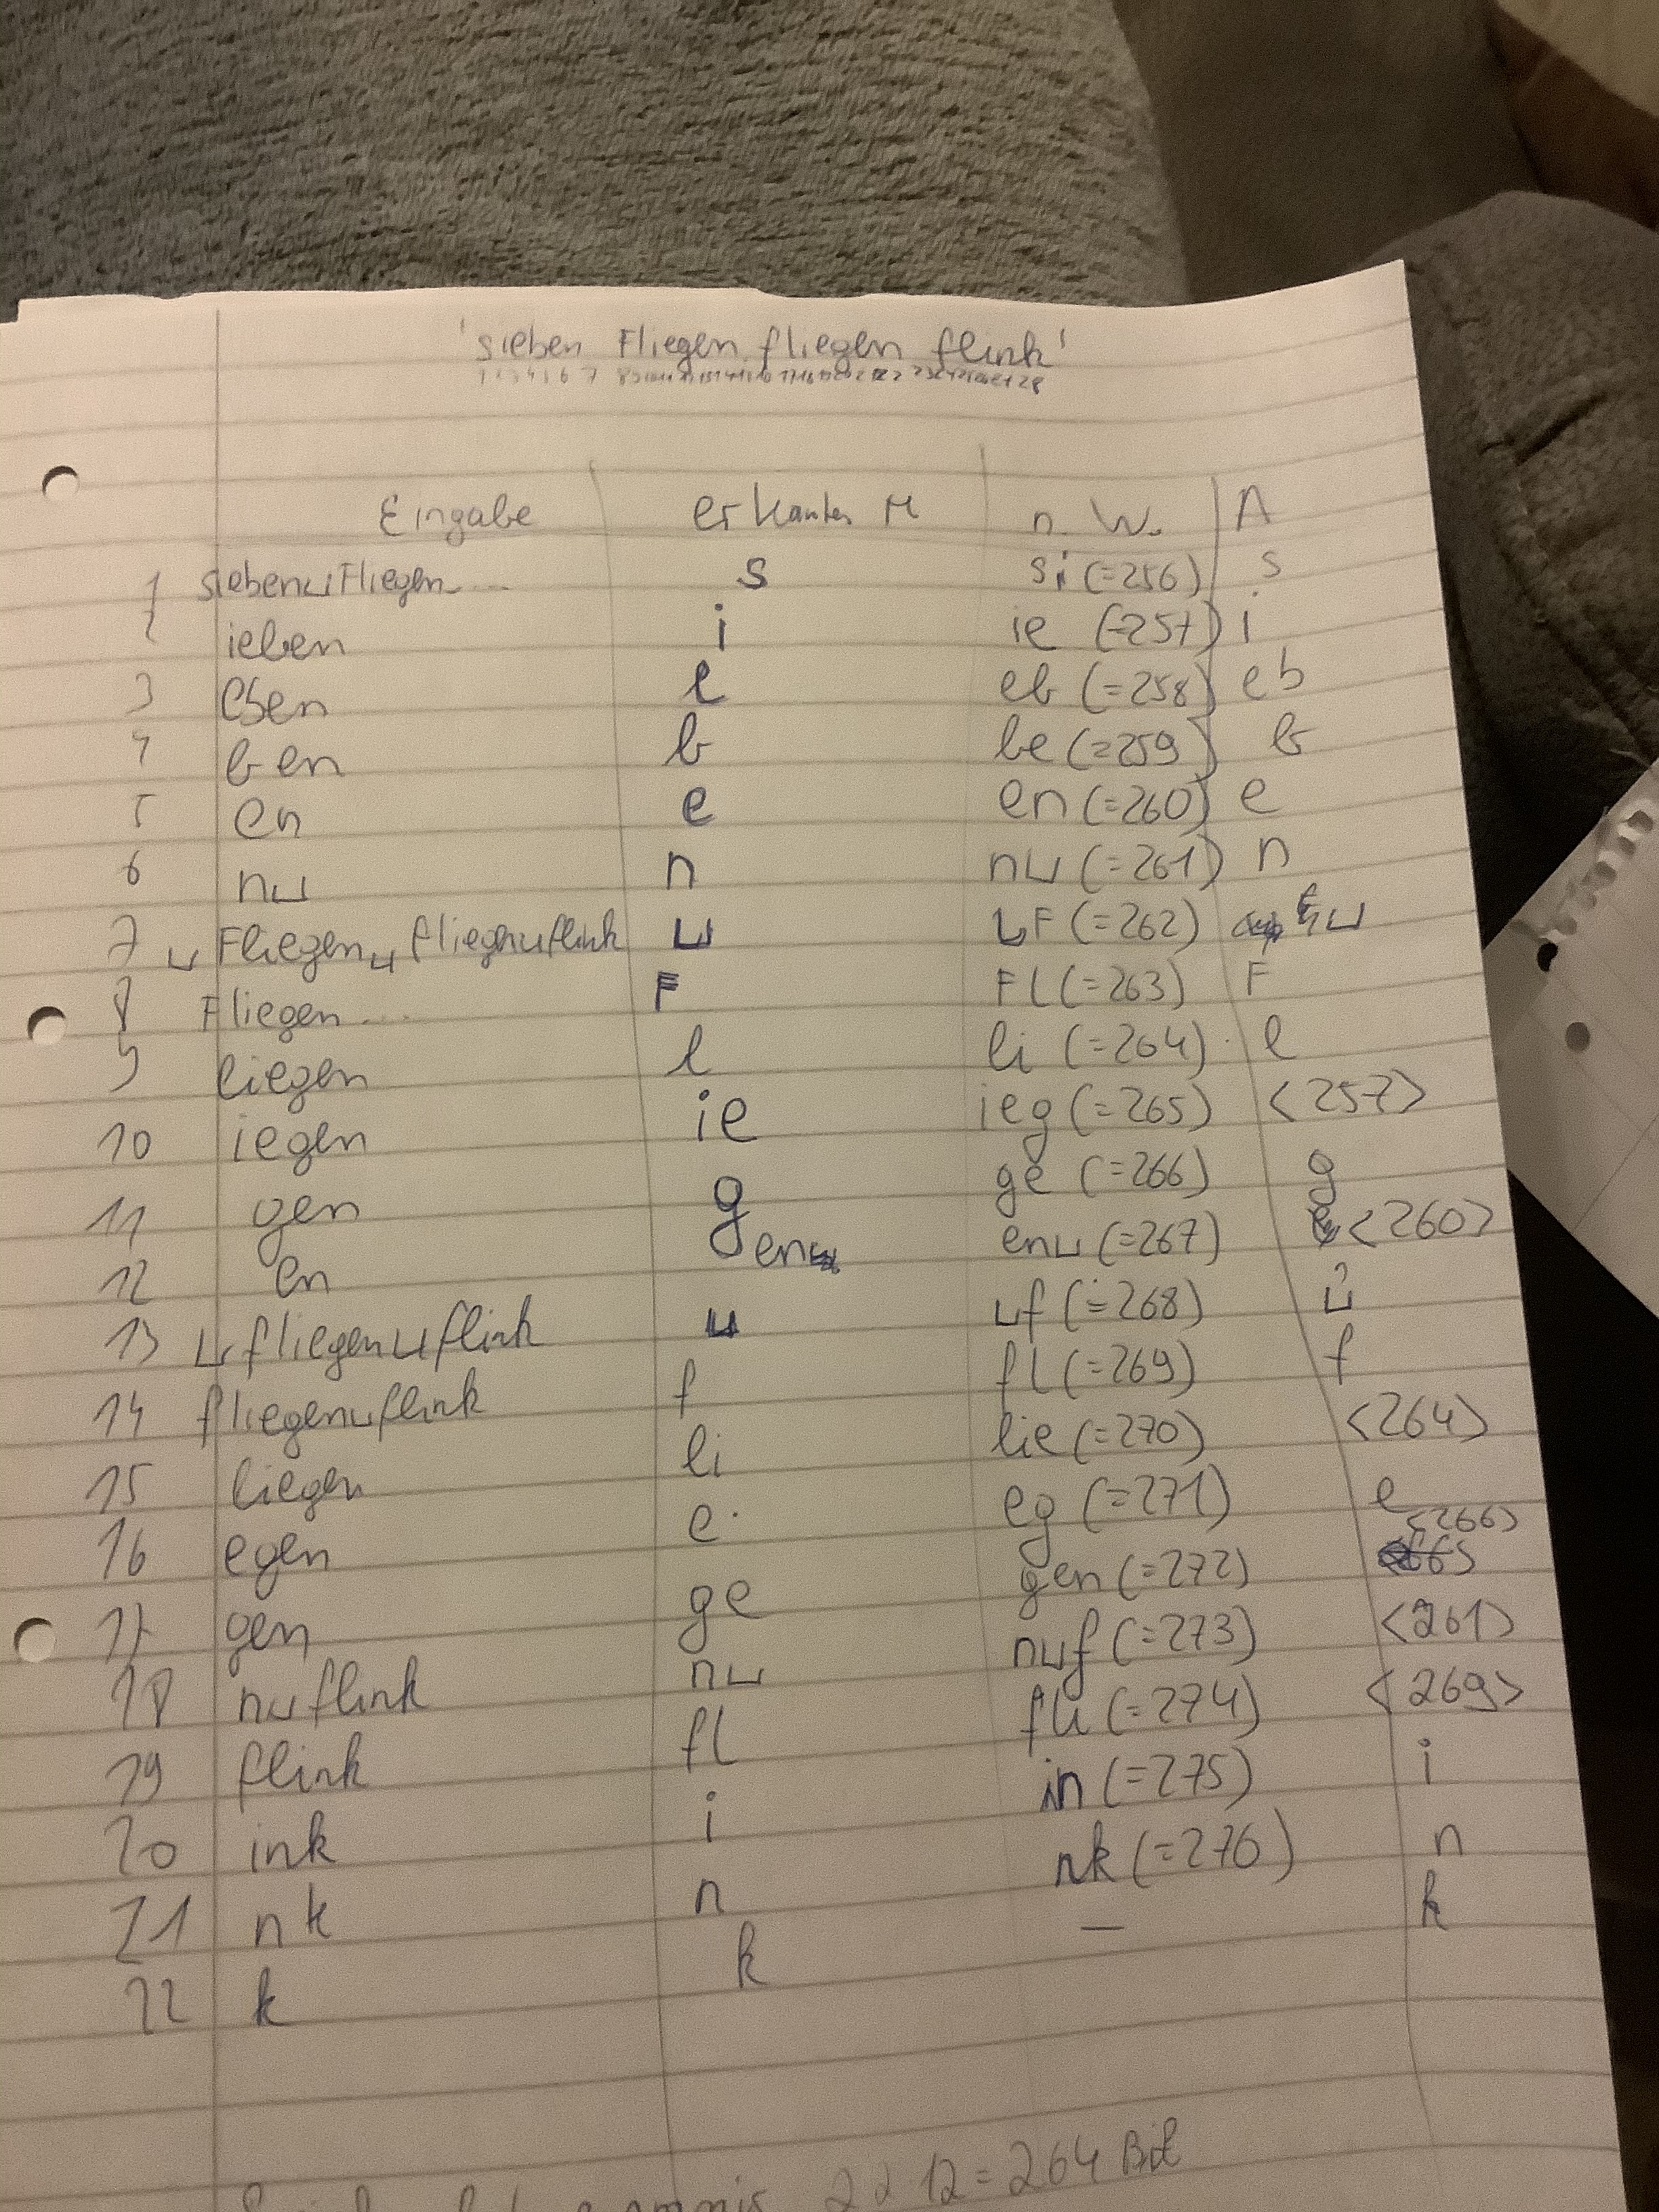 'sieben Fliegen fliegen flink'
Eingabe erkanntes M n. W. A
1 sieben␣Fliegen.... s si (=256) s
2 ieben i ie (=257) i
3 eben e eb (=258) eb
4 ben b be (=259) b
5 en e en (=260) e
6 n␣ n n␣ (=261) n
7 ␣Fliegen␣fliegen␣flink ␣ ␣F (=262) ␣
8 Fliegen.... F Fl (=263) F
9 liegen l li (=264) l
10 iegen ie ieg (=265) <257>
11 gen g ge (=266) g
12 en en en␣ (=267) <260>
13 ␣fliegen␣flink ␣ ␣f (=268) ␣
14 fliegen␣flink f fl (=269) f
15 liegen li lie (=270) <264>
16 egen e eg (=271) e
17 gen ge gen (=272) <266>
18 n␣flink n␣ n␣f (=273) <261>
19 flink fl fli (=274) <269>
20 ink i in (=275) i
21 nk n nk (=276) n
22 k k — k
22 12 = 264 Bit